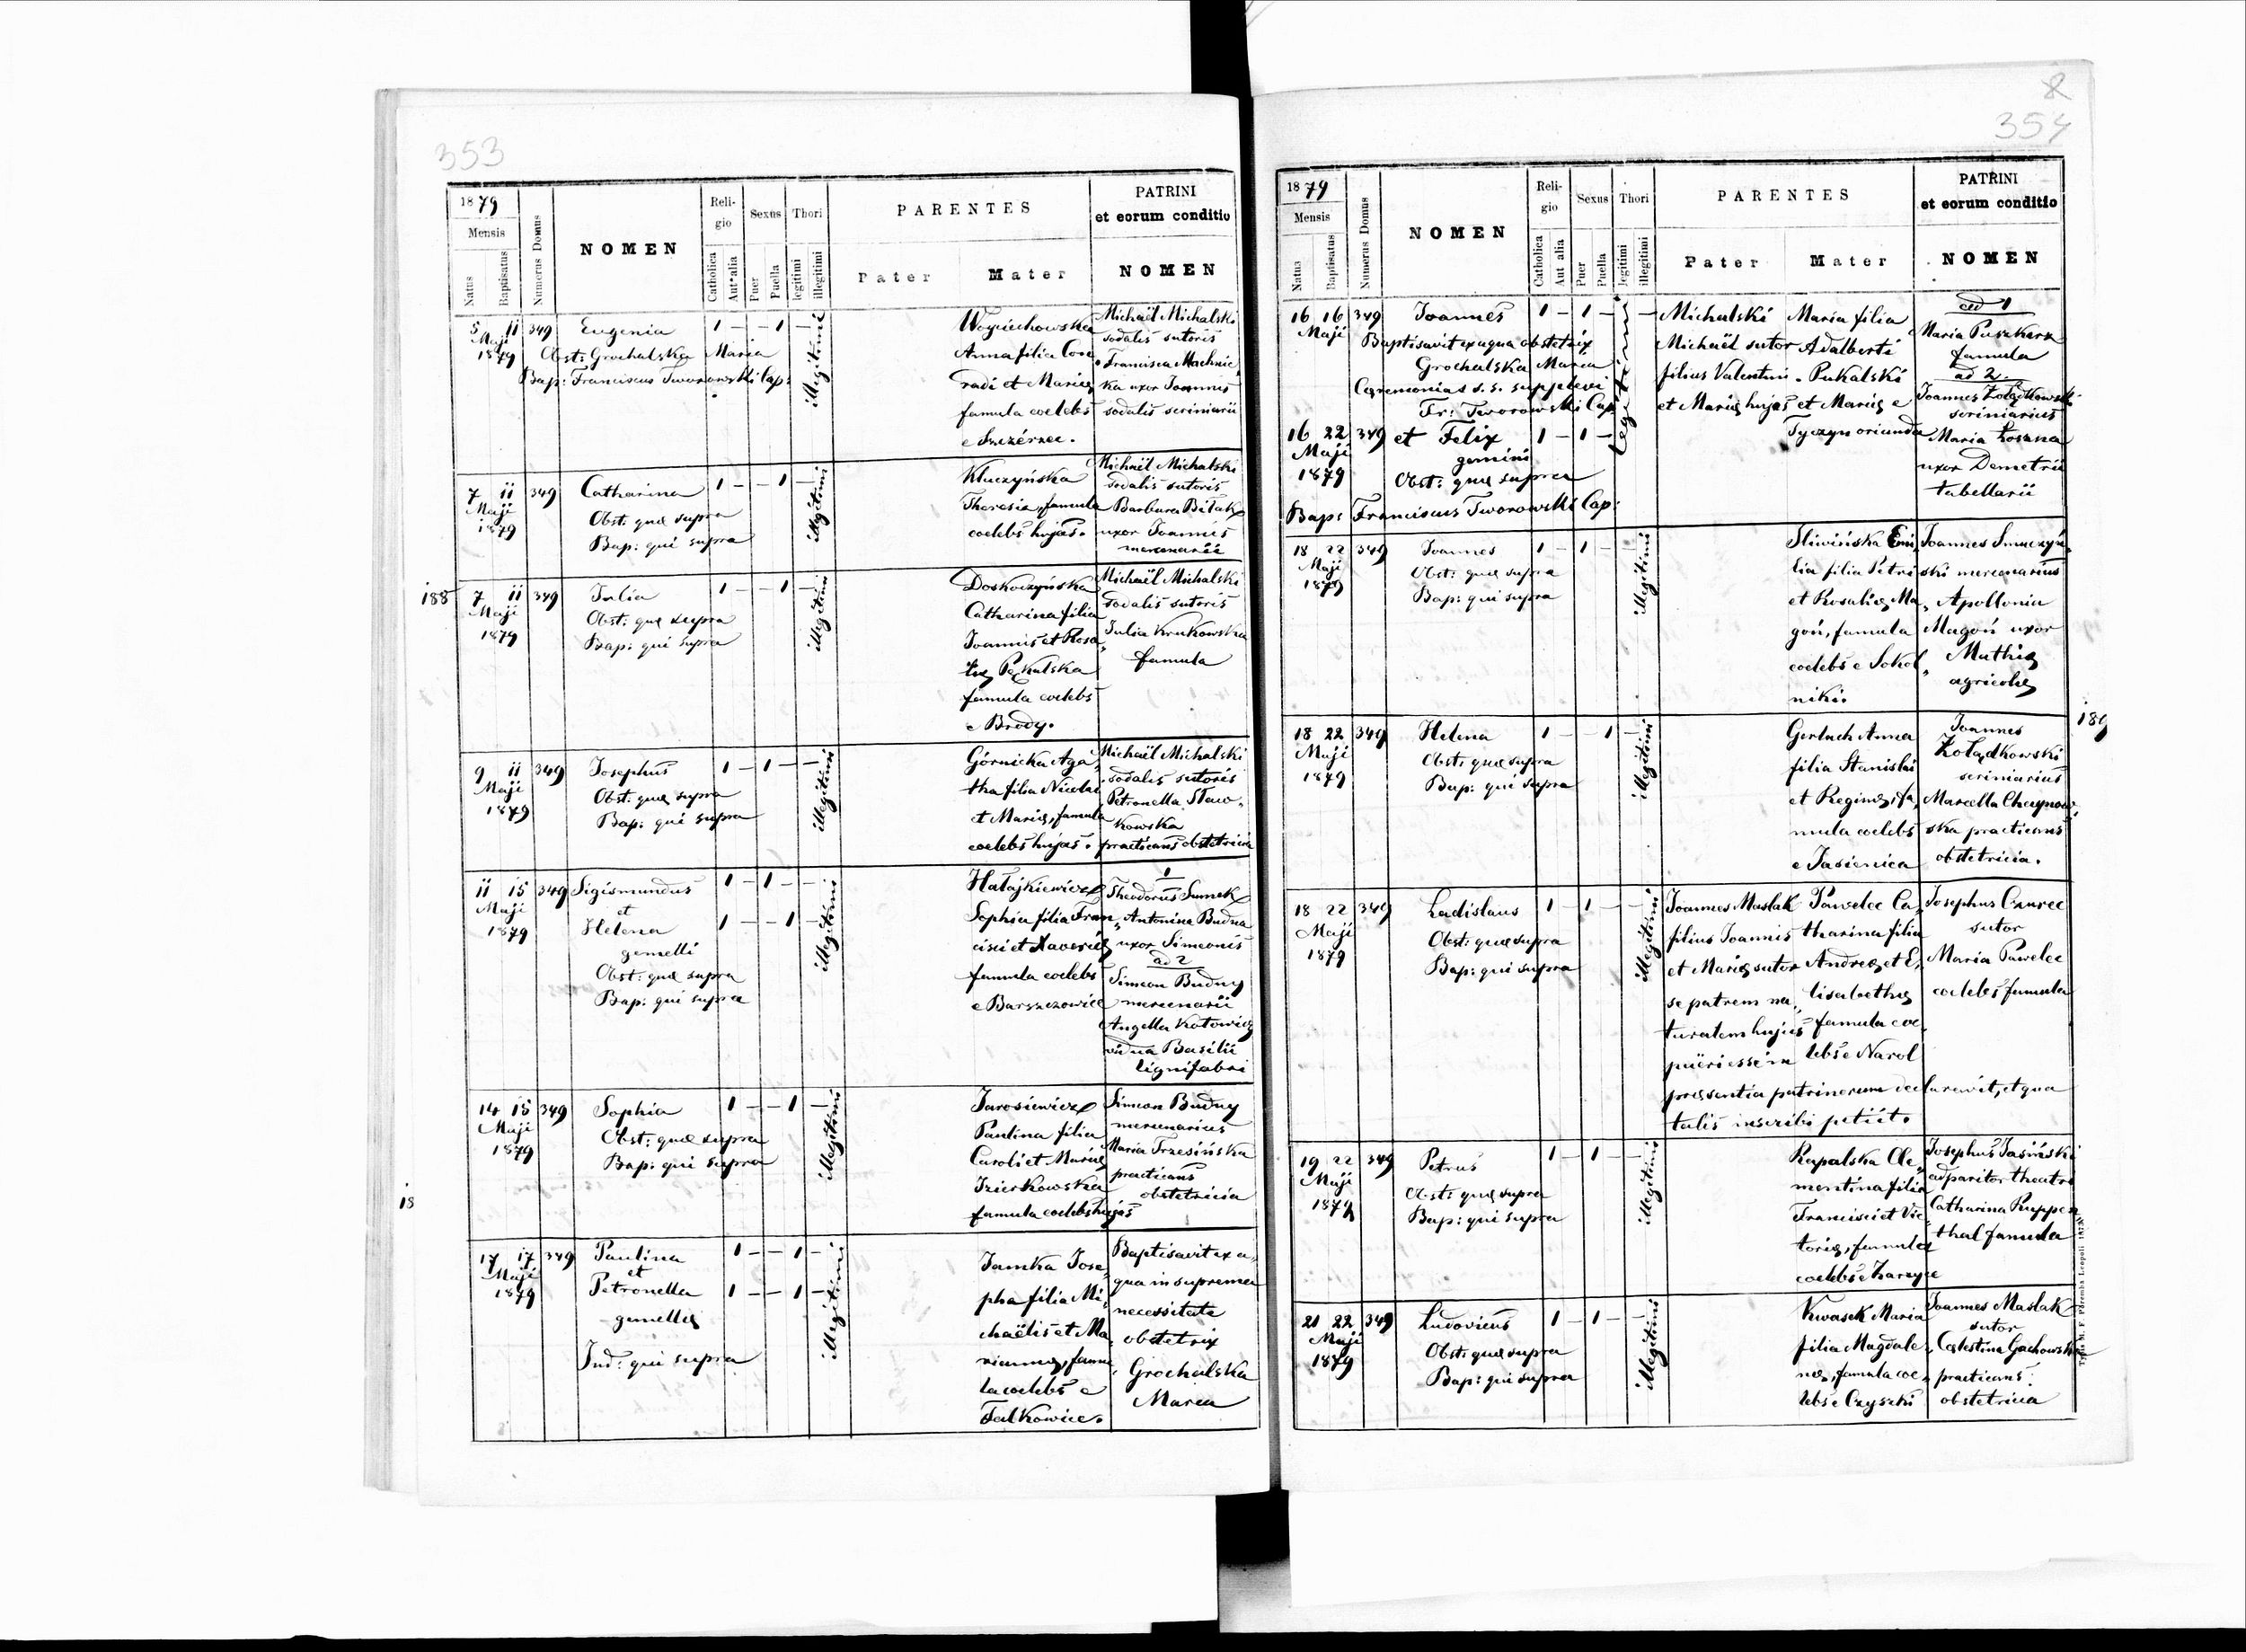 353
1879
Mensis
Natus
Baptisatus
Numerus Domus
NOMEN
Religio
Catholica
Aut alia
Sexus
Puer
Puella
Thori
legitimi
illegitimi
PARENTES
Pater
Mater
PATRINI
et eorum conditio
NOMEN
5 11 349 Eugenia 1 — — 1 —
Maji
1879
Obst: Grochalska Maria
Bap: Franciscus Tworowski Cap:
illegitimi
Woyciechowska
Anna filia Con
radi et Mariæ
famula coelebs
e Szczérzec.
Michaël Michalski
sodalis sutoris
Francisca Machnic
ka uxor Joannis
sodalis scriniarii
7 11 349 Catharina 1 — — 1 —
Maji
1879
Obst: quæ supra
Bap: qui supra
illegitimi
Kluczyńska
Theresia, famula
coelebs hujas.
Michaël Michalski
sodalis sutoris
Barbara Bełak
uxor Joannis
mercenarii
188
7 11 349 Julia 1 — — 1 —
Maji
1879
Obst: quæ supra
Bap: qui supra
illegitimi
Doskoczyńska
Catharina filia
Joannis et Rosa
liæ Pękalska
famula coelebs
e Brody.
Michaël Michalski
sodalis sutoris
Julia Krukowska
famula
9 11 349 Josephus 1 — 1 — —
Maji
1879
Obst: quæ supra
Bap: qui supra
illegitimi
Górnicka Aga
tha filia Nicolai
et Mariæ, famula
coelebs hujas.
Michaël Michalski
sodalis sutoris
Petronella Staw
kowska
practicans obstetricia
11 15 349 Sigismundus 1 — 1 — —
Maji
1879
et
Helena 1 — — 1 —
gemelli
Obst: quæ supra
Bap: qui supra
illegitimi
Hałajkiewicz
Sophia filia Fran
cisci et Xaveriæ
famula coelebs
e Barszczowice
1
Theodorus Sumek
Antonina Budna
uxor Simeonis
ad 2
Simeon Budny
mercenarii
Angella Kotowicz
vidua Basilii
lignifabri
14 15 349 Sophia 1 — — 1 —
Maji
1879
Obst: quæ supra
Bap: qui supra
illegitimi
Jarosiewicz
Paulina filia
Caroli et Mariæ
famula coelebs hujas
Simeon Budny
mercenarius
Maria Trzesińska
practicans
obstetricia
18
17 17 349 Paulina 1 — — 1 —
Maji
1879
et
Petronella 1 — — 1 —
gemellæ
Ind: qui supra
illegitimi
Jamka Jose
pha filia Mi
chaëlis et Ma
riannæ, famu
la coelebs e
Falkowice.
Baptisavit ex a
qua in suprema
necessitate
obstetrix
Grochalska
Maria
8
354
1879
Mensis
Natus
Baptisatus
Numerus Domus
NOMEN
Religio
Catholica
Aut alia
Sexus
Puer
Puella
Thori
legitimi
illegitimi
PARENTES
Pater
Mater
PATRINI
et eorum conditio
NOMEN
16 16 349 Joannes 1 — 1 — —
Maji
Baptisavit ex aqua obstetrix
Grochalska Maria
Cæremonias s. s. supplevi
Fr: Tworowski Cap
16 22 349 et Felix 1 — 1 —
Maji
1879
gemini
Obst: quæ supra
Bap: Franciscus Tworowski Cap:
legitimi
Michalski
Michaël sutor
filius Valentini
et Mariæ hujas
Maria filia
Adalberti
Pukalski
et Mariæ e
Tyczyn oriunda
ad 1
Maria Puszkarz
famula
ad 2.
Joannes Żołądkowski
scriniarius
Maria Łoszna
uxor Demetrii
tabellarii
18 22 349 Joannes 1 — 1 — —
Maji
1879
Obst: quæ supra
Bap: qui supra
illegitimi
Śliwińska Emi
lia filia Petri
et Rosaliæ Ma
goń, famula
coelebs e Sokol
niki.
Joannes Smuczyń
ski mercenarius
Apollonia
Magoń uxor
Mathiæ
agricolæ
189
18 22 349 Helena 1 — — 1 —
Maji
1879
Obst: quæ supra
Bap: qui supra
illegitimi
Gerlach Anna
filia Stanislai
et Reginæ, fa
mula coelebs
e Jasienica
Joannes
Żołądkowski
scriniarius
Marcella Chrynow
ska practicans
obstetricia.
18 22 349 Ladislaus 1 — 1 — —
Maji
1879
Obst: quæ supra
Bap: qui supra
illegitimi
Joannes Maslak
filius Joannis
et Mariæ sutor
se patrem na
turalem hujus
pueri esse in
præsentia patrinorum declaravit, et qua
talis inscribi petiit.
Pawelec Ca
tharina filia
Andreæ et E
lisabethæ
famula coe
lebs e Narol
Josephus Czurec
sutor
Maria Pawelec
coelebs famula
19 22 349 Petrus 1 — 1 — —
Maji
1879
Obst: quæ supra
Bap: qui supra
illegitimi
Rapalska Cle
mentina filia
Francisci et Vic
toriæ, famula
coelebs e Zarzyce
Josephus Jasiński
adparitor theatri
Catharina Ruppen
thal famula
21 22 349 Ludovicus 1 — 1 — —
Maji
1879
Obst: quæ supra
Bap: qui supra
illegitimi
Kwasek Maria
filia Magdale
næ, famula coe
lebs e Czyszki
Joannes Maslak
sutor
Cælestina Gachowska
practicans
obstetricia
Typis M. F. Poremba Leopoli